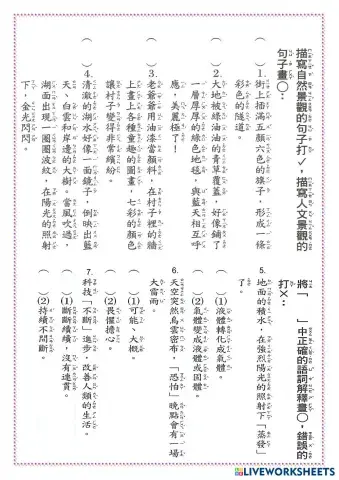 描寫自然景觀的句子打✓，描寫人文景觀的
句子畫○：
（　）1. 街上插滿五顏六色的旗子，形成一條
彩色的隧道。
（　）2. 大地被綠油油的青草覆蓋，好像鋪了
一層厚厚的綠色地毯，與藍天相互呼
應，美麗極了！
（　）3. 老爺爺用油漆當顏料，在村子裡的牆
上畫上各種童趣的圖畫，七彩的顏色
讓村子變得非常繽紛。
（　）4. 清澈的湖水好像一面鏡子，倒映出藍
天、白雲和岸邊的大樹。當風吹過，
湖面出現一圈圈波紋，在陽光的照射
下，金光閃閃。
將「　　」中正確的語詞解釋畫○，錯誤的
打×：
5. 地面的積水，在強烈陽光的照射下「蒸發」
了。
（　）(1)液體轉化成氣體。
（　）(2)氣體變成液體或固體。
6. 天空突然烏雲密布，「恐怕」晚點會有一場
大雷雨。
（　）(1)可能、大概。
（　）(2)畏懼擔心。
7. 科技「不斷」進步，改善人類的生活。
（　）(1)斷斷續續，沒有連貫。
（　）(2)持續不間斷。
LIVEWORKSHEETS